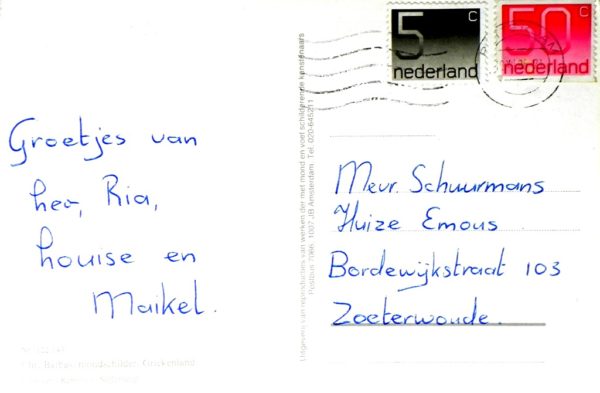 5 c
nederland
50 c
nederland
Groetjes van
Leo, Ria,
Louise en
Maikel.
Mevr. Schuurmans
Huize Emous
Bordewijkstraat 103
Zoeterwoude.
Uitgevers van reproducties van werken der met mond en voet schilderende kunstenaars
Postbus 7086, 1007 JB Amsterdam Tel. 020-645211